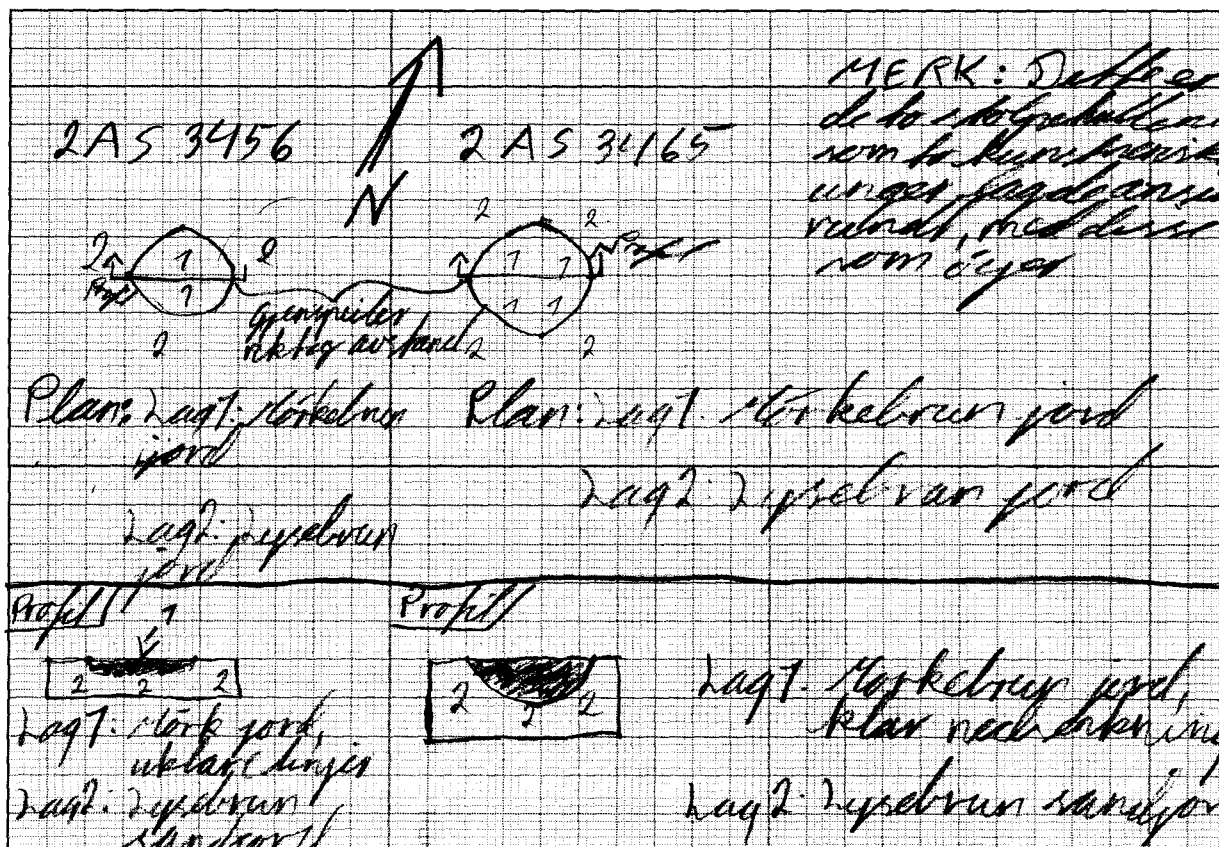 MERK: Dette er
de to stolpehullene
som
rundt, med disse
som øyer
2AS 3456
N
2AS 34165
2
2
2
1
2
1
1
Profil
Profil
1
1
1
Gjenspeiler
riktig avstand
2
2
2
Plan: Lag 1: Mörkebrun
jord
Lag 2: Lysebrun
jord
Plan: Lag 1: Mörkebrun jord
Lag 2: Lysebrun jord
Profil
1
2
2
2
Lag 1: Mörk jord,
uklare linjer
Lag 2: Lysebrun
sandjord
Profil
2
2
2
Lag 1: Mörkebrun jord,
klar nedskrkning
Lag 2: Lysebrun sandjor